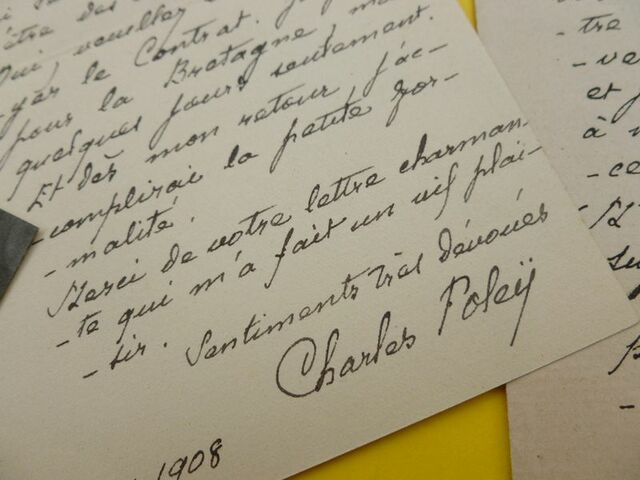 être des
oui, veuillez
le Contrat. J
pour la Bretagne,
quelques jours seulement.
Et dès mon retour, j'ac-
-complirai la petite for-
-malité.
Merci de votre lettre charman-
-te qui m'a fait un vif plai-
-sir. Sentiments très dévoués
Charles Foleÿ
1908
tre
- ve
et j
à
- ce
su